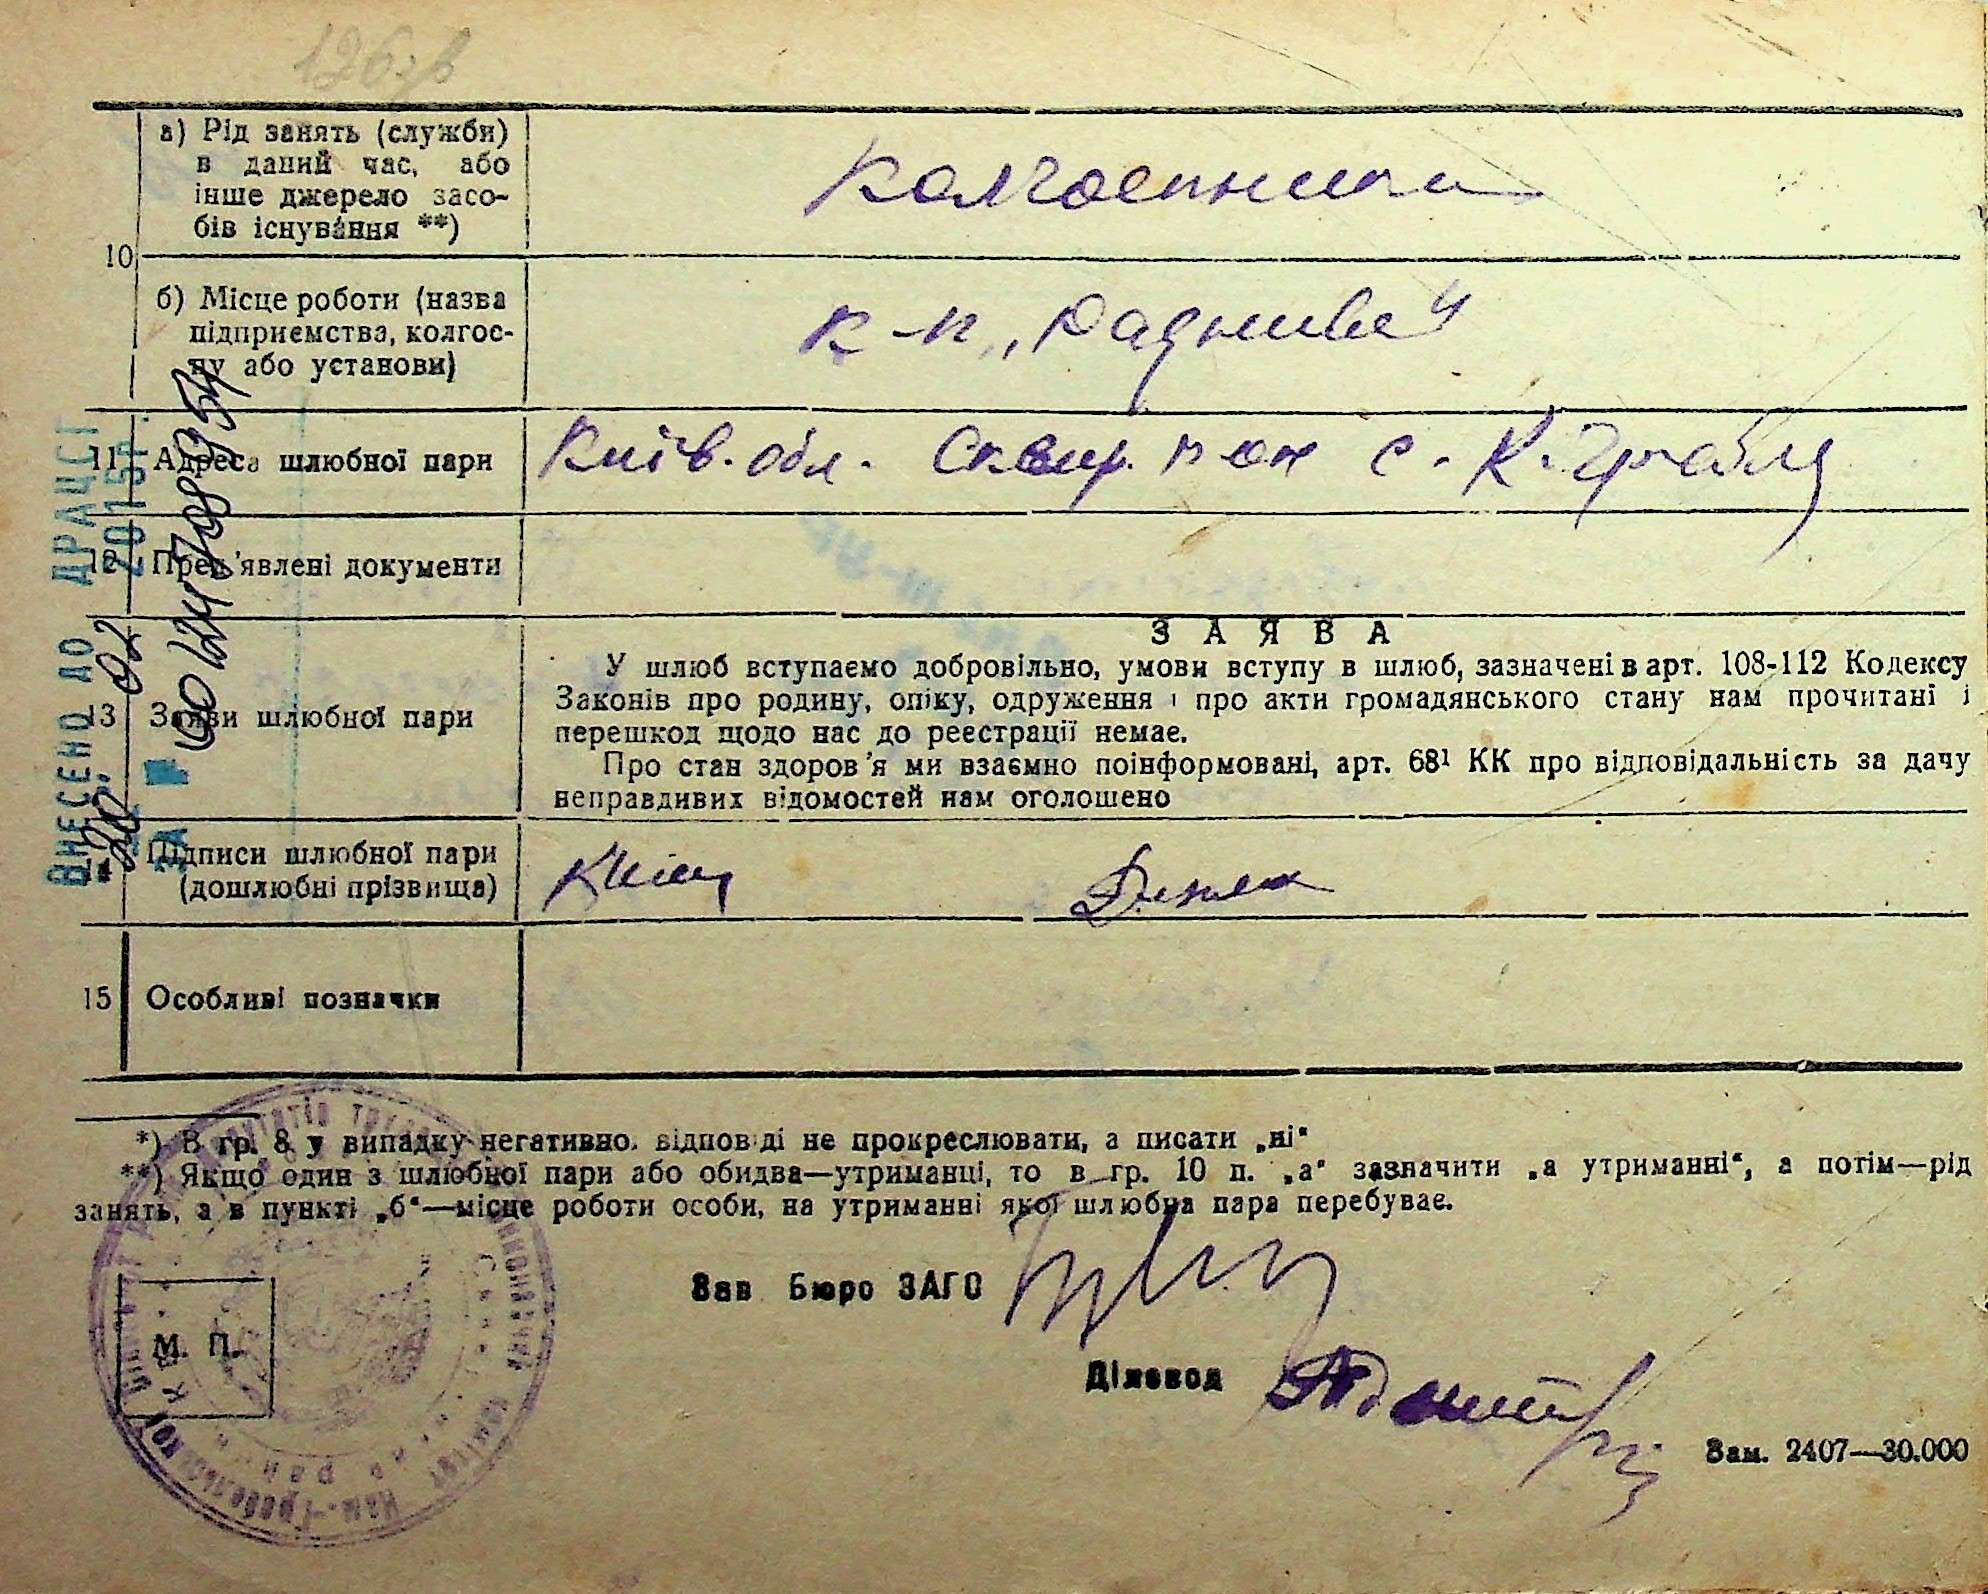 а) Рід занять (служби)
в даний час, або
інше джерело засо-
бів існування **)
Колгоспники
10
б) Місце роботи (назва
підприємства, колгос-
пу або установи)
к-п „Раднива"
11 Адреса шлюбної пари
Київ. обл. Сквир. р-он с. К. Гребля
12 Пред'явлені документи
З А Я В А
13 Заяви шлюбної пари
У шлюб вступаємо добровільно, умови вступу в шлюб, зазначені в арт. 108-112 Кодексу
Законів про родину, опіку, одруження і про акти громадянського стану нам прочитані і
перешкод щодо нас до реєстрації немає.
Про стан здоров'я ми взаємно поінформовані, арт. 68¹ КК про відповідальність за дачу
неправдивих відомостей нам оголошено
14 Підписи шлюбної пари
(дошлюбні прізвища)
15 Особливі позначки
ВНЕСЕНО ДО ДРАЦСГ
20. 02 2015р.
ЗА №
*) В гр. 8 у випадку негативно. відповіді не прокреслювати, а писати „ні"
**) Якщо один з шлюбної пари або обидва—утриманці, то в гр. 10 п. „а" зазначити „а утриманні", а потім—рід
занять, а в пункті „б"—місце роботи особи, на утриманні якої шлюбна пара перебуває.
Зав Бюро ЗАГС
М. П.
Діловод
Зам. 2407—30.000